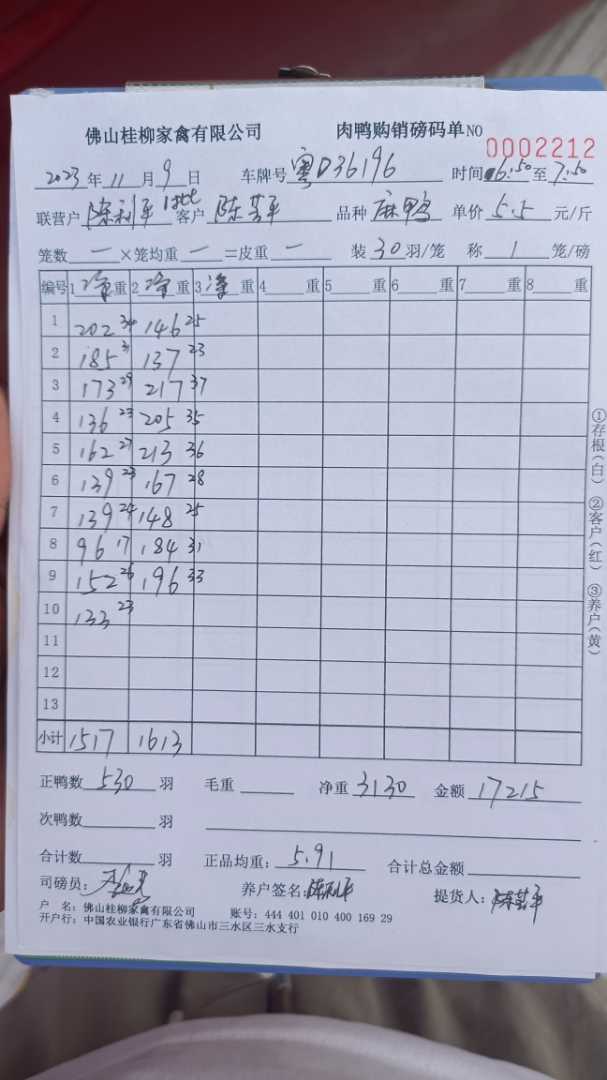 佛山桂柳家禽有限公司 肉鸭购销磅码单NO 0002212
2023年11月9日 车牌号 粤D36196 时间 6:50至7:50
联营户 陈利平 客户 陈芸平 品种 麻鸭 单价 5.5 元/斤
笼数 一 ×笼均重 一 =皮重 一 装 30 羽/笼 称 1 笼/磅
编号 1 净重 2 净重 3 净重 4 重 5 重 6 重 7 重 8 重
1 202 34 146 25
2 185 31 137 23
3 173 29 217 37
4 136 23 205 35
5 162 27 213 36
6 139 23 167 28
7 139 24 148 25
8 96 17 184 31
9 152 26 196 33
10 133 23
11
12
13
小计 1517 1613
正鸭数 530 羽 毛重 净重 3130 金额 17215
次鸭数 羽
合计数 羽 正品均重: 5.91 合计总金额
司磅员: 养户签名: 陈利平 提货人: 陈芸平
户 名: 佛山桂柳家禽有限公司 账号: 444 401 010 400 169 29
开户行: 中国农业银行广东省佛山市三水区三水支行
①存根(白) ②客户(红) ③养户(黄)